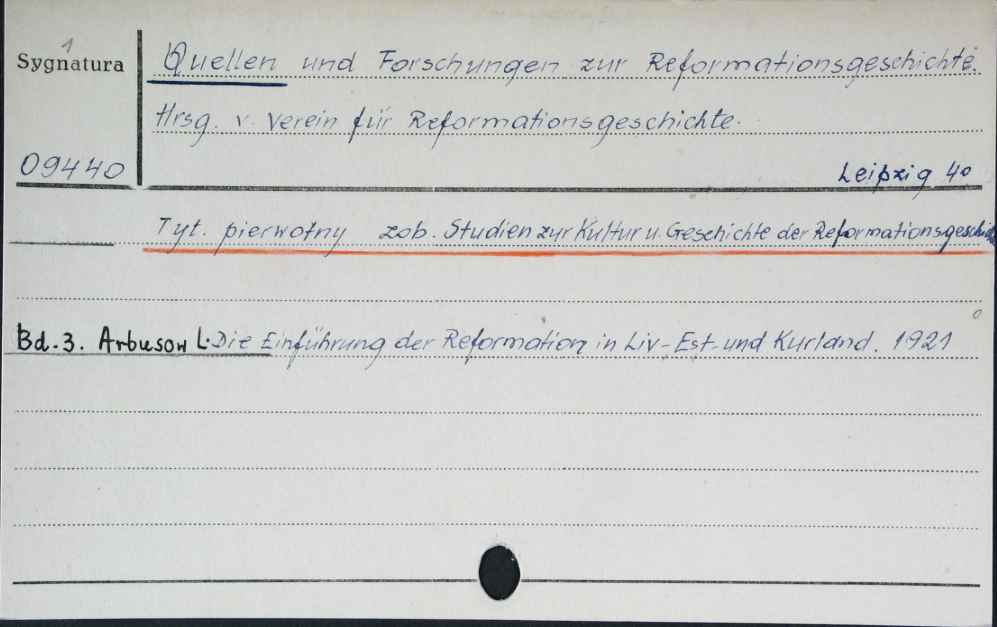 1
Sygnatura
09440
Quellen und Forschungen zur Reformationsgeschichte.
Hrsg. v. Verein für Reformationsgeschichte.
Leipzig 40
Tyt. pierwotny zob. Studien zur Kultur u. Geschichte der Reformationsgeschich
Bd. 3. Arbusow L. Die Einführung der Reformation in Liv-, Est- und Kurland. 1921